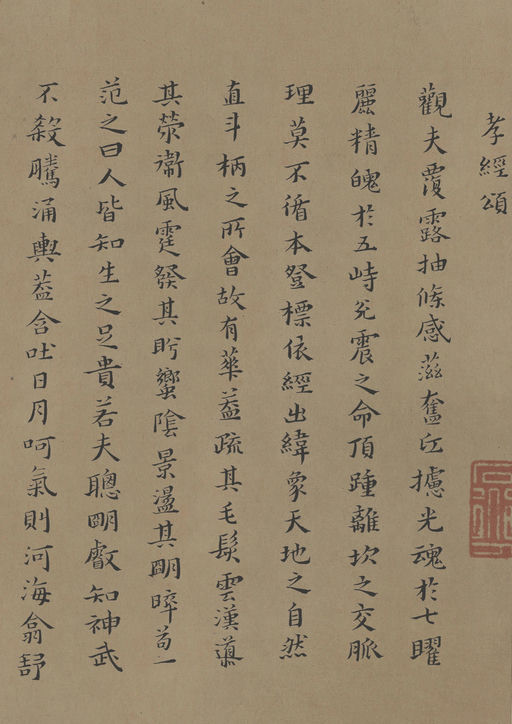 孝經頌
觀夫覆露抽條感滋奮攄光魂於七曜
麗精魄於五峙兊震之命頂踵離坎之交脈
理莫不循本登標依經出緯象天地之自然
直斗柄之所會故有華葢疏其毛髮雲漢導
其滎衞風霆發其肸蠁陰景盪其朙睟苟一
范之曰人皆知生之足貴若夫聰朙叡知神武
不殺騰涌輿葢含吐日月呵氣則河海翕舒